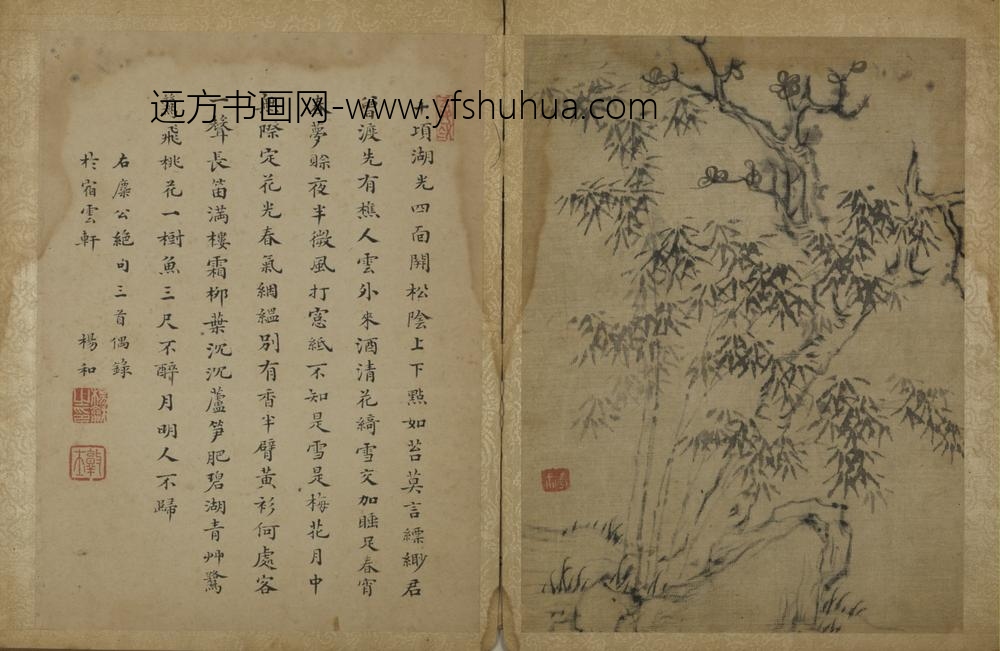 远方书画网-www.yfshuhua.com
項湖光四面開松陰上下點如苔莫言縹緲君
渡先有樵人雲外來酒清花綺雪交加睡足春宵
夢賒夜半微風打窓紙不知是雪是梅花月中
際定花光春氣絪縕別有香半臂黃衫何處客
一聲長笛滿樓霜柳葉沉沉蘆笋肥碧湖青艸鷺
飛桃花一樹魚三尺不醉月明人不歸
右麋公絕句三首偶錄
於宿雲軒 楊和